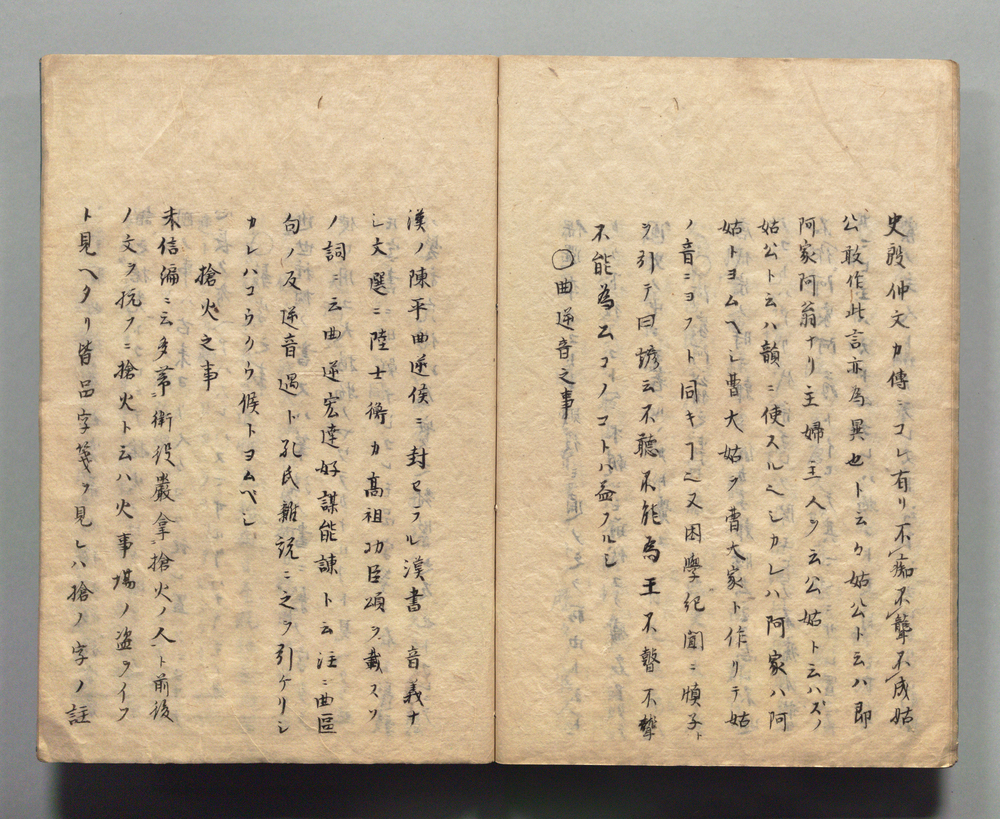 史殷仲文カ傳ニコレ有リ不痴不聾不成姑
公敢作此言亦為異也ト云ウ姑公ト云ハ即
阿家阿翁ナリ主婦主人ヲ云公姑ト云ハズノ
姑公ト云ハ韻ニ使スルシカレハ阿家ハ阿
姑トヨムヘシ曹大姑ヲ曹大家ト作リテ姑
ノ音ニヨフト同キ又困學紀聞ニ慎子ト
ヲ引テ曰諺云不聽不能為王不瞽不聾
不能為公コノコト益フルシ
〇曲逆音之事
漢ノ陳平曲逆侯ニ封セラル漢書ニ音義ナ
シ文選ニ陸士衡カ髙祖功臣頌ヲ載ス
ノ詞ニ云曲逆宏達好謀能諫ト云注ニ曲區
句ノ反逆音遇ト孔氏雜説ニ之ヲ引ケリシ
カレハコウクウ候トヨムベシ
搶火之事
未信編ニ云多茦衛役嚴拿搶火ノ人ト前後
ノ文ヲ按フニ搶火ト云ハ火事場ノ盗ヲイフ
ト見ヘタリ皆品字箋ヲ見レハ搶ノ字ノ註